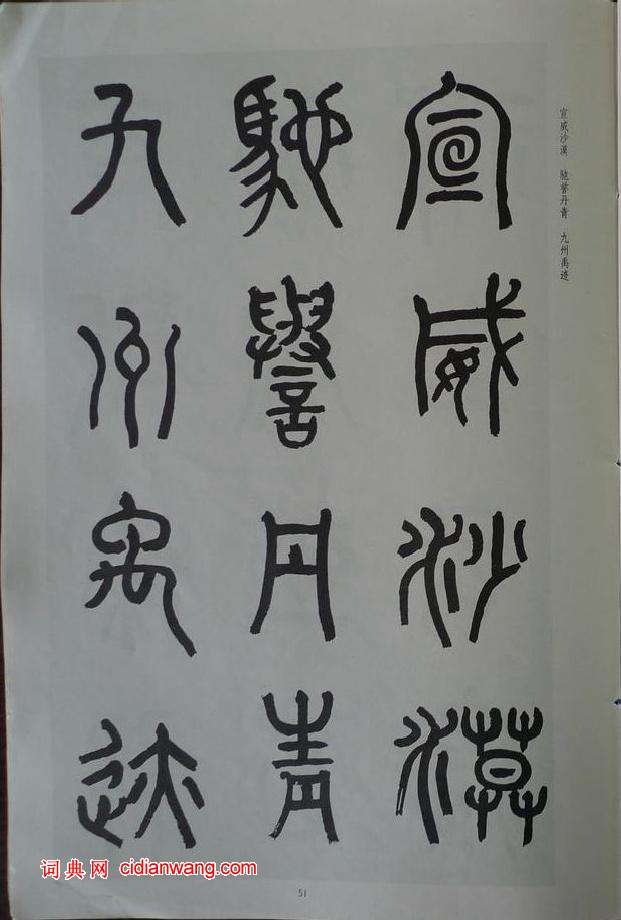 宣威沙漠 馳誉丹青 九州禹迹
宣威沙漠
馳譽丹青
九州禹迹
词典网 cidianwang.com
51